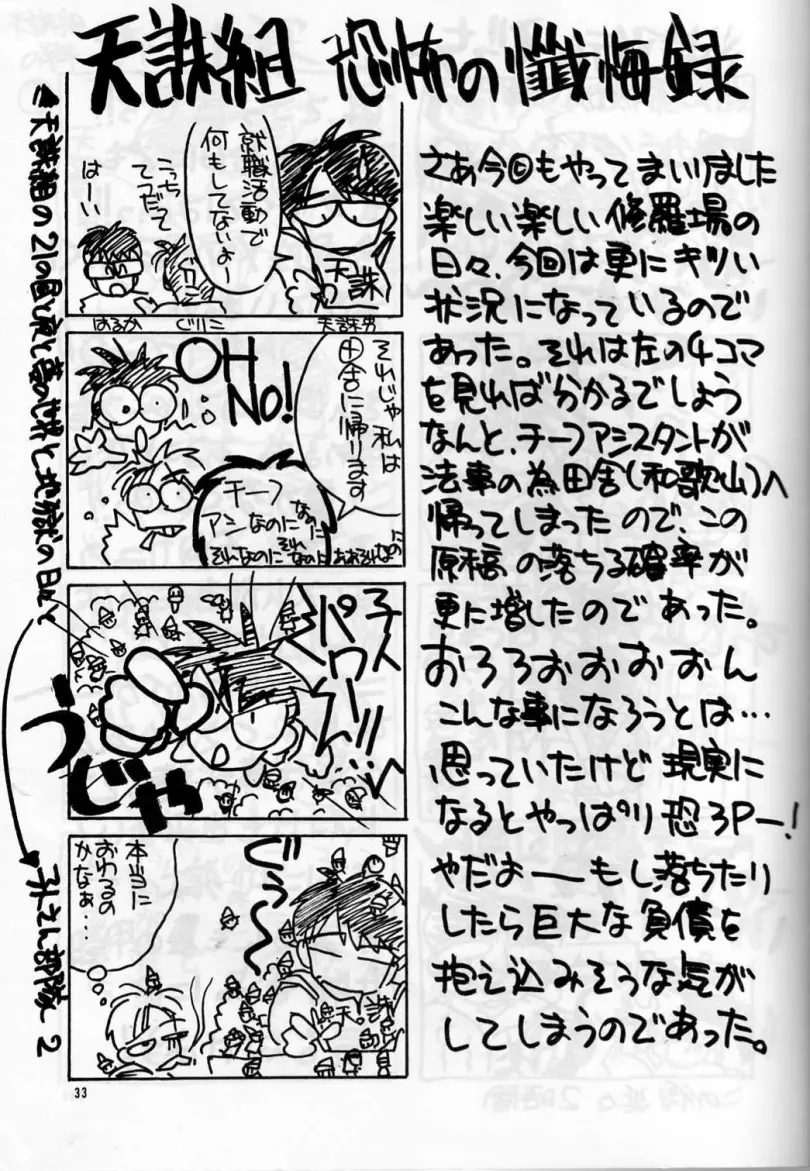 天誅組 恐怖の懺悔録
さあ今回もやってまいりました
楽しい楽しい修羅場の
日々、今回は更にキツい
状況になっているので
あった。それは左の4コマ
を見れば分かるでしょう
なんと、チーフアシスタントが
法事の為田舎(和歌山)へ
帰ってしまったので、この
原稿の落ちる確率が
更に増したのであった。
おろろおおおおん
こんな事になろうとは…
思っていたけど現実に
なるとやっぱり恐3Pー!
やだよーーもし落ちたり
したら巨大な負債を
抱え込みそうな気が
してしまうのであった。
就職活動で
何もしてないよー
こっち
てつだって
はーい
天誅
はるか
ぐりこ
天誅男
それじゃ私は
田舎に帰ります
OH
NO!
チーフ
アシなのに
なのに
そんなのに
それなのに
おおそれなのに
チィ
パワー!!
うじゃ
ぐぅ〜〜
本当に
おわるの
かなぁ…
天誅
33